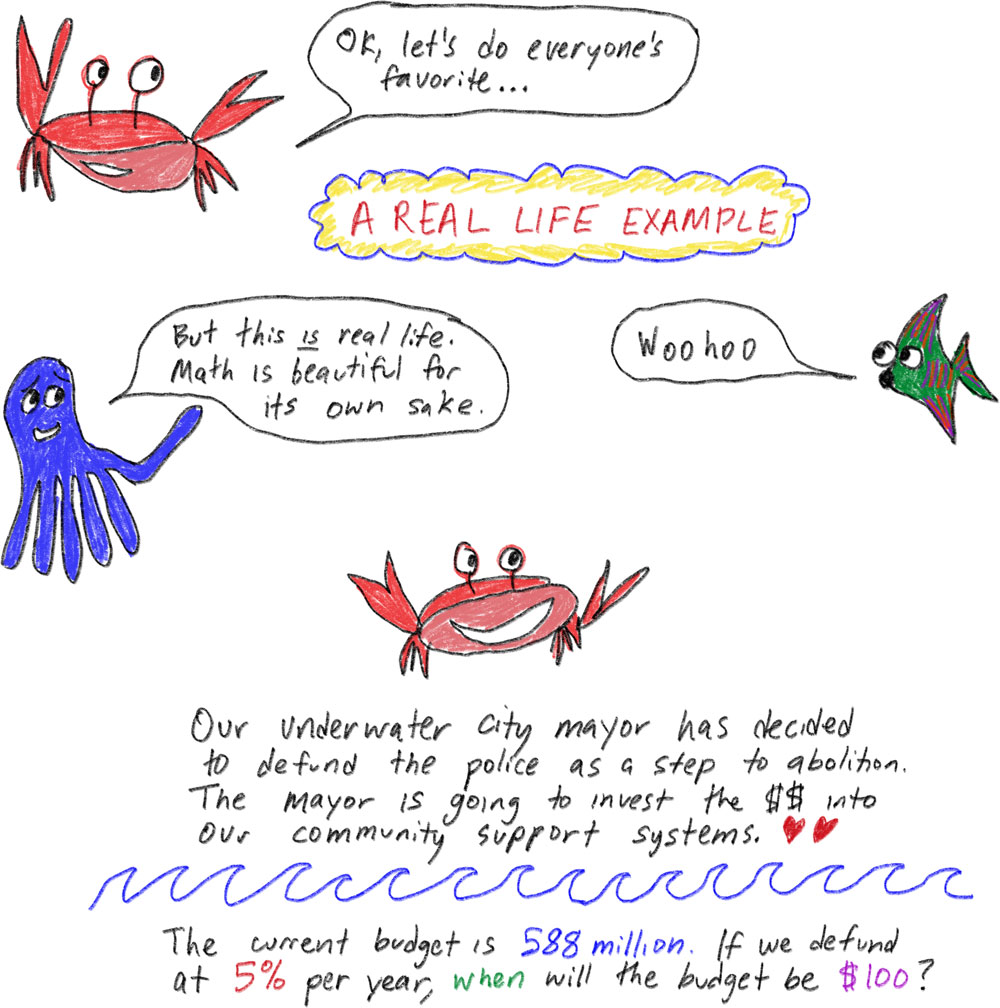 OK, let's do everyone's
favorite...
A REAL LIFE EXAMPLE
But this is real life.
Math is beautiful for
its own sake.
Woohoo
Our underwater city mayor has decided
to defund the police as a step to abolition.
The mayor is going to invest the $$ into
our community support systems.
The current budget is 588 million. If we defund
at 5% per year, when will the budget be $100?